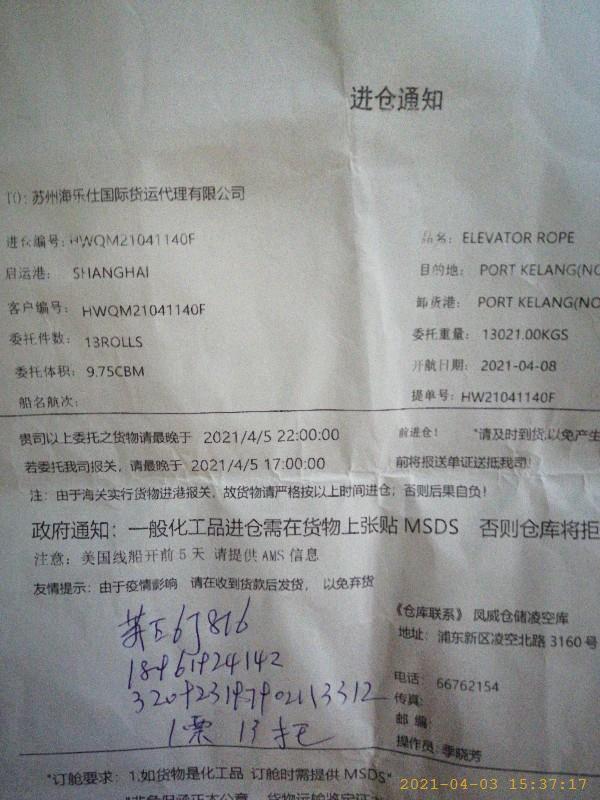 进仓通知
TO: 苏州海乐仕国际货运代理有限公司
进仓编号: HWQM21041140F
品名: ELEVATOR ROPE
启运港: SHANGHAI
目的地: PORT KELANG(NO
客户编号: HWQM21041140F
卸货港: PORT KELANG(NO
委托件数: 13ROLLS
委托重量: 13021.00KGS
委托体积: 9.75CBM
开航日期: 2021-04-08
船名航次:
提单号: HW21041140F
贵司以上委托之货物请最晚于 2021/4/5 22:00:00 前进仓! "请及时到货,以免产生
若委托我司报关, 请最晚于 2021/4/5 17:00:00 前将报送单证送抵我司!
注: 由于海关实行货物进港报关, 故货物请严格按以上时间进仓; 否则后果自负!
政府通知: 一般化工品进仓需在货物上张贴 MSDS 否则仓库将拒
注意: 美国线船开前5天 请提供AMS信息
友情提示: 由于疫情影响 请在收到货款后发货, 以免弃货
《仓库联系》 凤威仓储凌空库
地址: 浦东新区凌空北路 3160 号
电话: 66762154
传真:
邮 编:
操作员: 季晓芳
18961924142
1票 13 托
"订舱要求: 1.如货物是化工品 订舱时需提供 MSDS"
2021-04-03 15:37:17